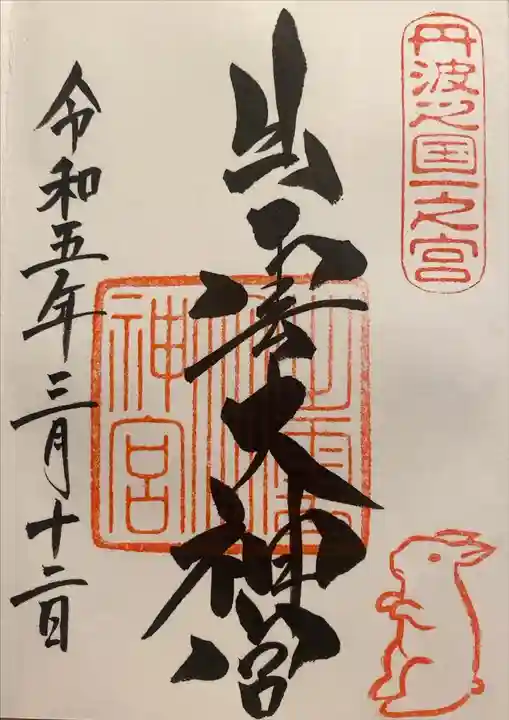 丹波之国一之宮
出雲大神宮
神宮
令和五年三月十二日